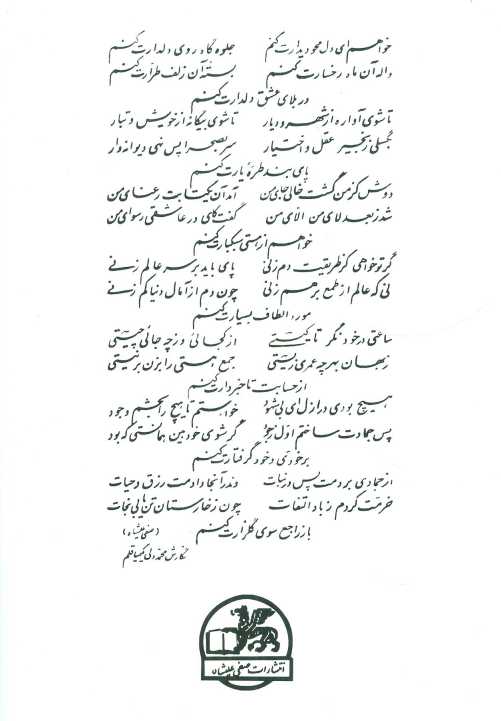 خواهم ای دل محو دیدارت کنم جلوه گاه روی دلدارت کنم
واله آن ماه رخسارت کنم بستهٔ آن زلف طرّارت کنم
در بلای عشق دلدارت کنم
تا شوی آواره از شهر و دیار تا شوی بیگانه از خویش و تبار
بگسلی زنجیر عقل و اختیار سر بصحرا پس نهی دیوانه‌وار
پای بند طرهٔ یارت کنم
دوش کز من گشت خالی جای من آمد آن یکتا بت رعنای من
شد ز بعد لای من الّای من گفت کای در عاشقی رسوای من
خواهم از هستی سبکبارت کنم
گر تو خواهی کز طریقت دم زنی پای باید بر سر عالم زنی
نی که عالم از طمع بر هم زنی چون دم از آمال دنیا کم زنی
مورد الطاف بسیارت کنم
ساعتی در خود نگر تا کیستی از کجائی وز چه جائی چیستی
در جهان بهر چه عمری زیستی جمع هستی را بزن بر نیستی
از حسابت تا خبردارت کنم
هیچ بودی در ازل ای بی شهود خواستم تا هیچ را بخشم وجود
پس جمادت ساختم اول ز جود گر شوی خود بین همانستی که بود
بر خودی خود گرفتارت کنم
از جمادی بردمت پس در نبات وندر آنجا دادمت رزق و حیات
خرمت کردم ز باد التفات چون ز خارستان تن یابی نجات
باز راجع سوی گلزارت کنم
(صفی علیشاه)
نگارش محمد ولی کیمیا قلم
انتشارات صفی علیشاه